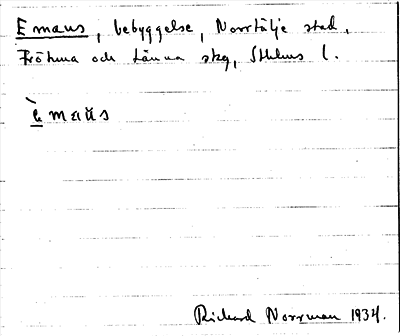 Emaus, bebyggelse, Norrtälje stad,
Frötuna och Länna skg, Sthlms l.
èmaŭs
Richard Norrman 1934.